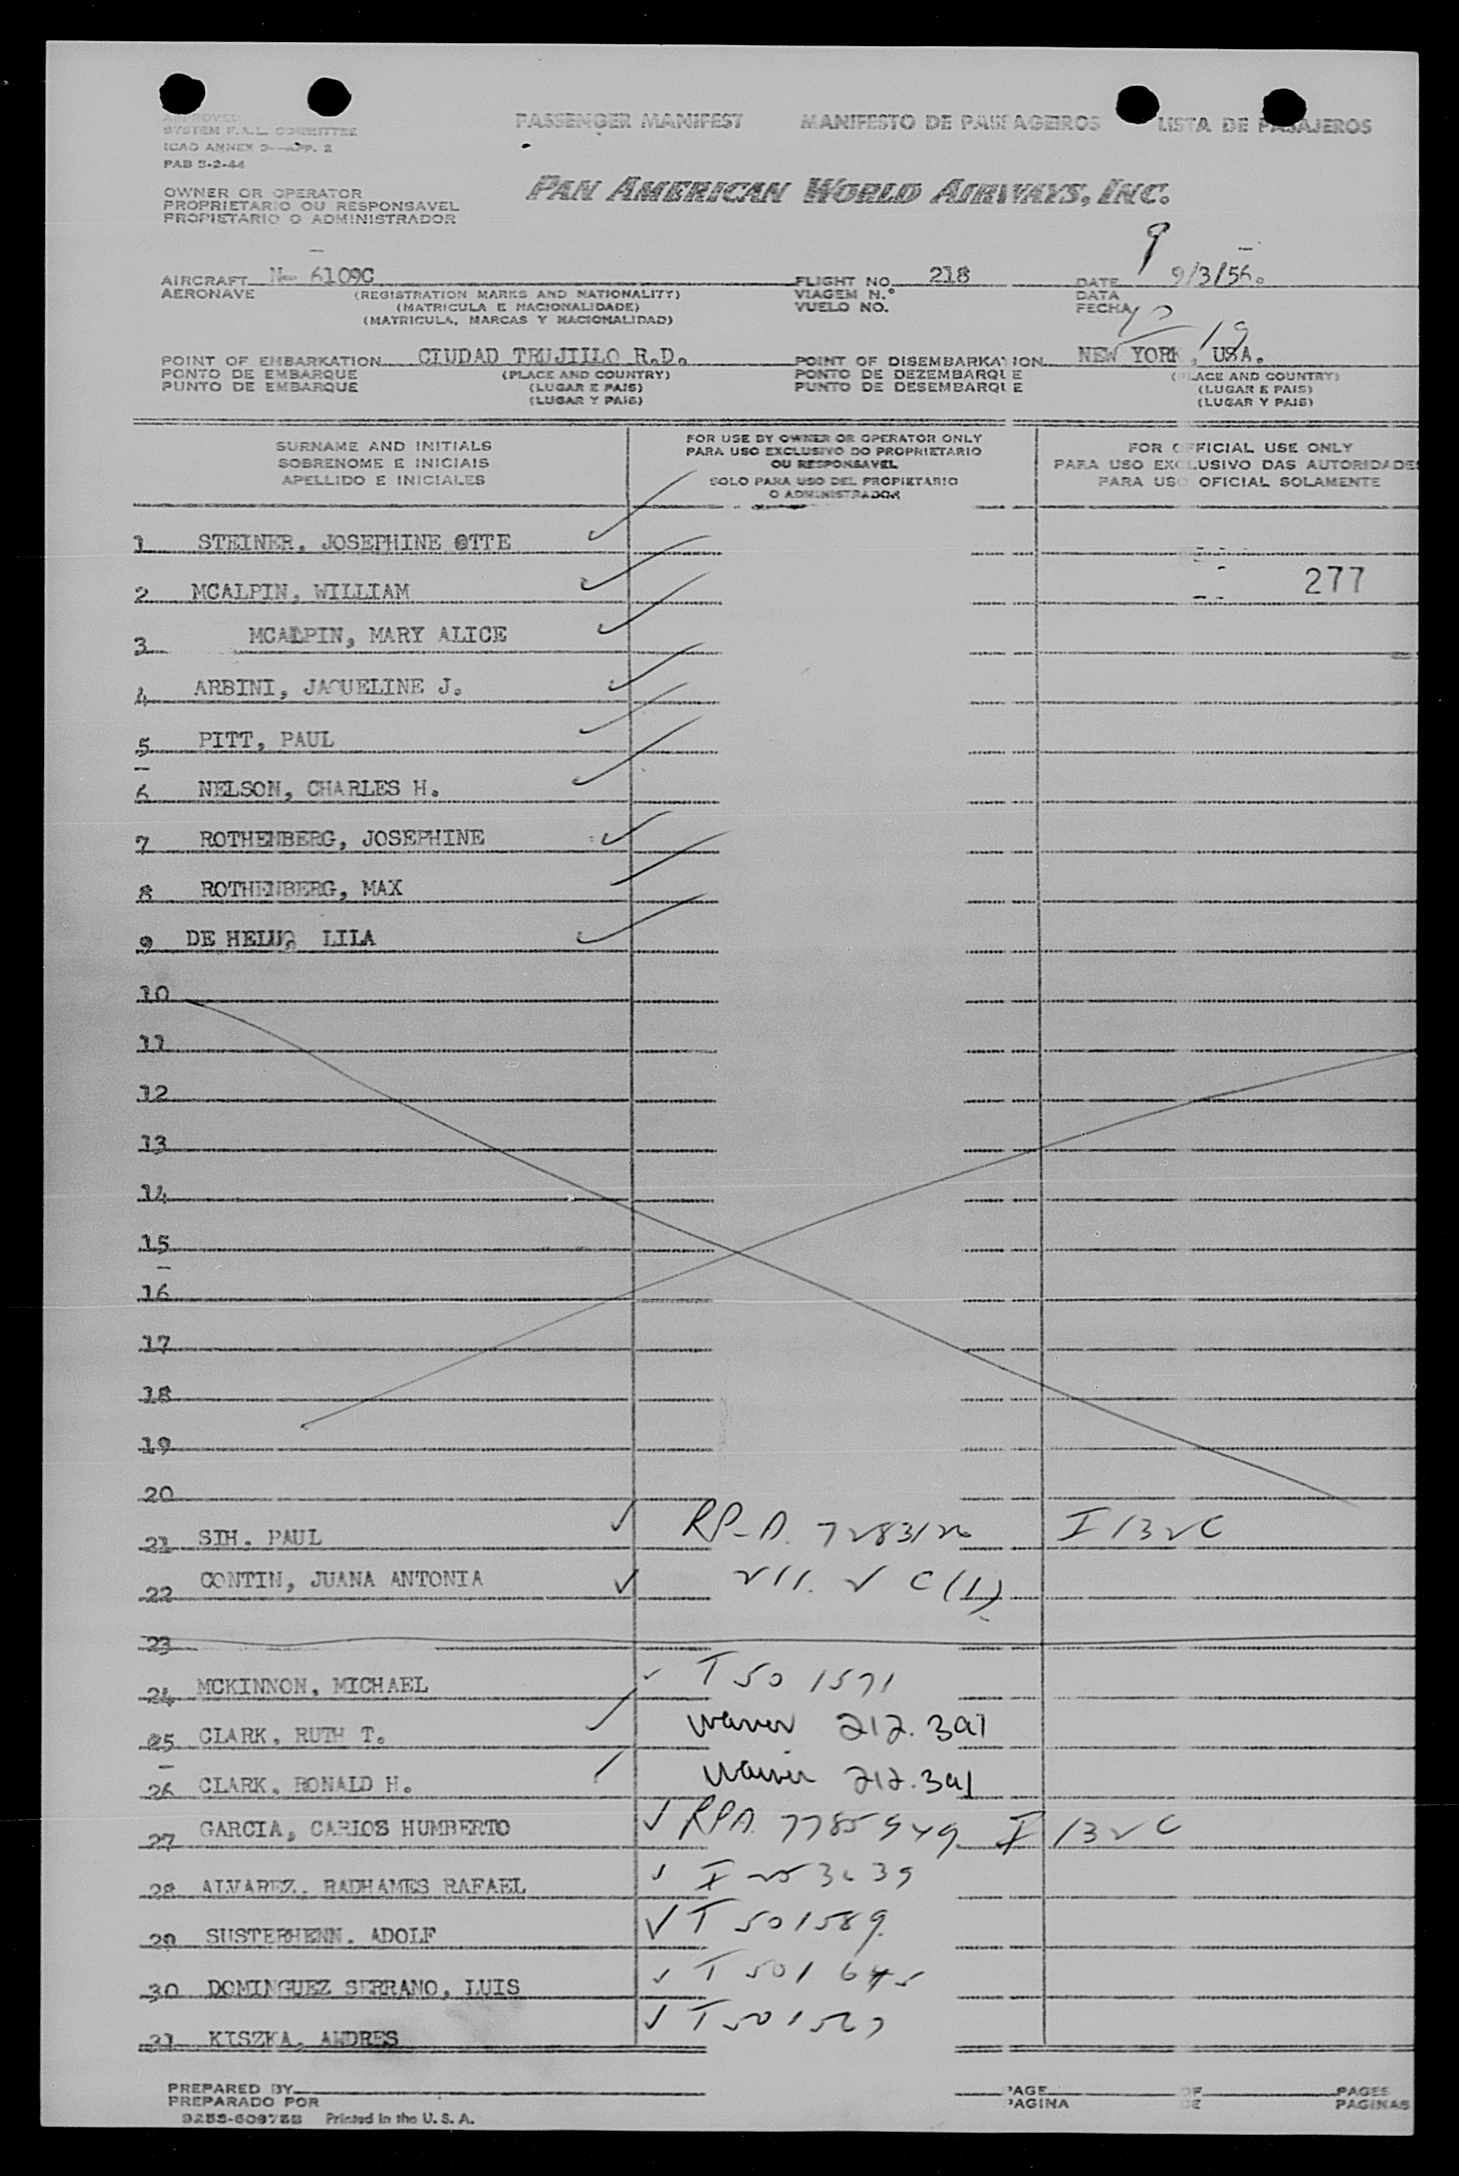 APPROVED
SYSTEM F.A.L. COMMITTEE
ICAO ANNEX 9—APP. 2
PAB 5-2-44
PASSENGER MANIFEST MANIFESTO DE PASSAGEIROS LISTA DE PASAJEROS
OWNER OR OPERATOR
PROPRIETARIO OU RESPONSAVEL
PROPIETARIO O ADMINISTRADOR
PAN AMERICAN WORLD AIRWAYS, INC.
9
AIRCRAFT N- 6109C FLIGHT NO. 218 DATE 9/3/56.
AERONAVE (REGISTRATION MARKS AND NATIONALITY) VIAGEM N.° DATA
(MATRICULA E NACIONALIDADE) VUELO NO. FECHA
(MATRICULA, MARCAS Y NACIONALIDAD)
19
POINT OF EMBARKATION CIUDAD TRUJILLO R.D. POINT OF DISEMBARKATION NEW YORK, USA.
PONTO DE EMBARQUE (PLACE AND COUNTRY) PONTO DE DEZEMBARQUE (PLACE AND COUNTRY)
PUNTO DE EMBARQUE (LUGAR E PAIS) PUNTO DE DESEMBARQUE (LUGAR E PAIS)
(LUGAR Y PAIS) (LUGAR Y PAIS)
SURNAME AND INITIALS
SOBRENOME E INICIAIS
APELLIDO E INICIALES
FOR USE BY OWNER OR OPERATOR ONLY
PARA USO EXCLUSIVO DO PROPRIETARIO
OU RESPONSAVEL
SOLO PARA USO DEL PROPIETARIO
O ADMINISTRADOR
FOR OFFICIAL USE ONLY
PARA USO EXCLUSIVO DAS AUTORIDADES
PARA USO OFICIAL SOLAMENTE
1 STEINER, JOSEPHINE OTTE
2 MCALPIN, WILLIAM 277
3 MCALPIN, MARY ALICE
4 ARBINI, JAQUELINE J.
5 PITT, PAUL
6 NELSON, CHARLES H.
7 ROTHENBERG, JOSEPHINE
8 ROTHENBERG, MAX
9 DE HELU, LILA
10
11
12
13
14
15
16
17
18
19
20
21 SIH, PAUL RP-A. I 132C
22 CONTIN, JUANA ANTONIA 211. 2 C(1)
23
24 MCKINNON, MICHAEL T 501571
25 CLARK, RUTH T. Waiver 212.3a1
26 CLARK, RONALD H. Waiver 212.3a1
27 GARCIA, CARLOS HUMBERTO RPA 7785949 I 132C
28 ALVAREZ, RADHAMES RAFAEL
29 SUSTERHENN, ADOLF T 501589
30 DOMINGUEZ SERRANO, LUIS T 501645
31 KISZKA, ANDRES
PREPARED BY PAGE OF PAGES
PREPARADO POR PAGINA DE PAGINAS
Printed in the U. S. A.